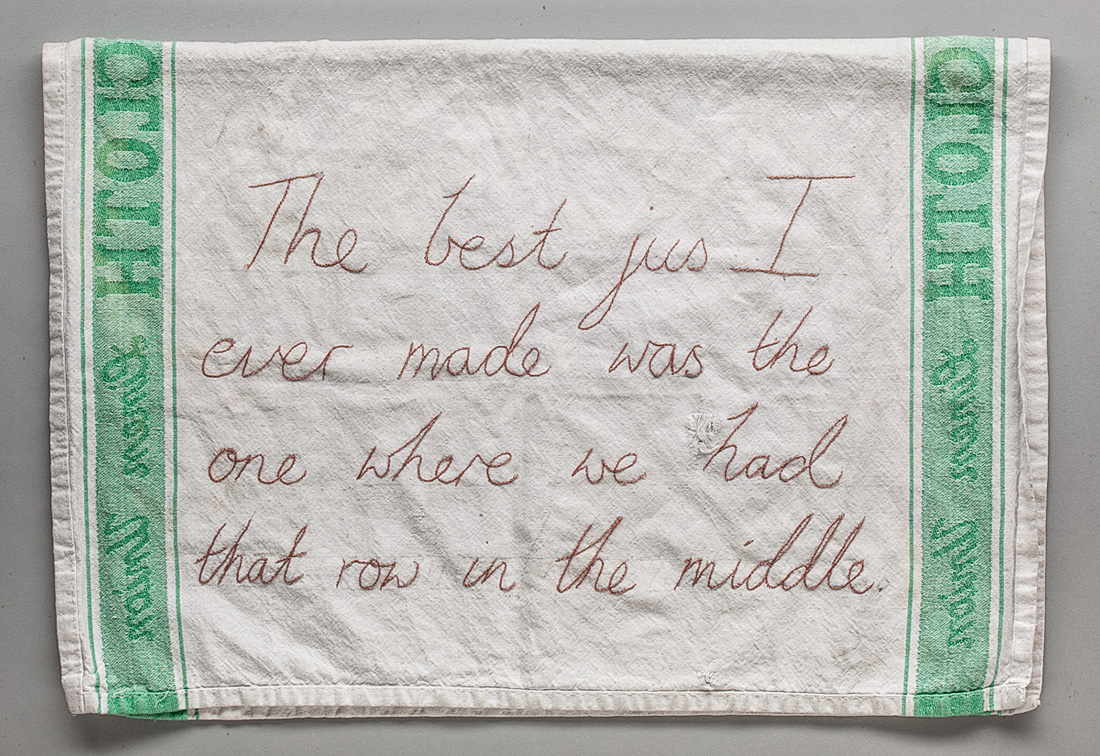 The best jus I
ever made was the
one where we had
that row in the middle.
CLOTH
CLOTH